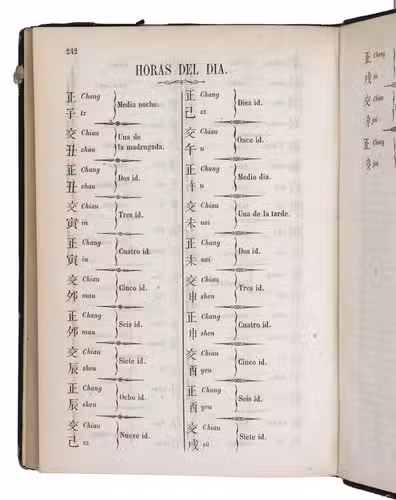 242
HORAS DEL DIA.
正 Chang
子 tz
Media noche.
交 Chiau
丑 chau
Una de
la madrogada.
正 Chang
丑 chau
Dos id.
交 Chiau
寅 in
Tres id.
正 Chang
寅 in
Cuatro id.
交 Chiau
夘 mau
Cinco id.
正 Chang
夘 mau
Seis id.
交 Chiau
辰 shen
Siete id.
正 Chang
辰 shen
Ocho id.
交 Chiau
己 sz
Nueve id.
正 Chang
己 sz
Diez id.
交 Chiau
午 u
Once id.
正 Chang
午 u
Medio dia.
交 Chiau
未 uei
Una de la tarde.
正 Chang
未 uei
Dos id.
交 Chiau
申 shen
Tres id.
正 Chang
申 shen
Cuatro id.
交 Chiau
酉 yeu
Cinco id.
正 Chang
酉 yeu
Seis id.
交 Chiau
戌 sü
Siete id.
正 Chang
戌 sü
交 Chiau
亥 jai
正 Chang
亥 jai